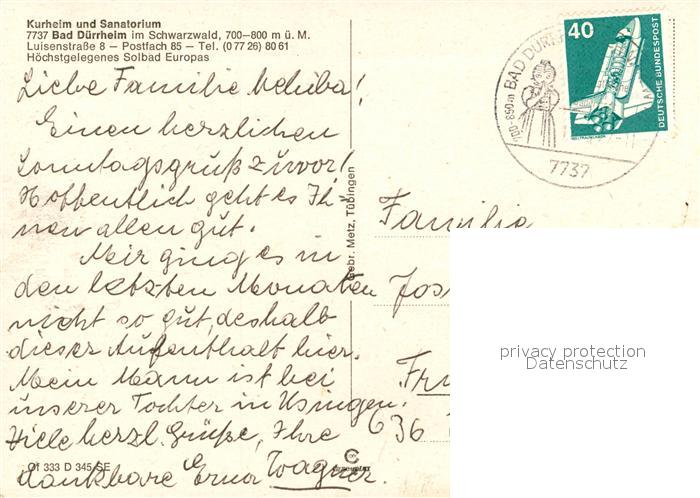 Kurheim und Sanatorium
7737 Bad Dürrheim im Schwarzwald, 700–800 m ü. M.
Luisenstraße 8 – Postfach 85 – Tel. (0 77 26) 80 61
Höchstgelegenes Solbad Europas
Liebe Familie !
Einen herzlichen
Sonntagsgruß zuvor!
Hoffentlich geht es Ih-
nen allen gut.
Mir ging es in
den letzten Monaten
nicht so gut, deshalb
dieser Aufenthalt hier.
Mein Mann ist bei
unserer Tochter in Usingen.
Viele herzl. Grüße, Ihre
dankbare Erna Wagner.
Of 333 D 345 SE
Gebr. Metz, Tübingen
BAD DÜR
7737
40
DEUTSCHE BUNDESPOST
Familie
Jos
Fr
636
privacy protection
Datenschutz